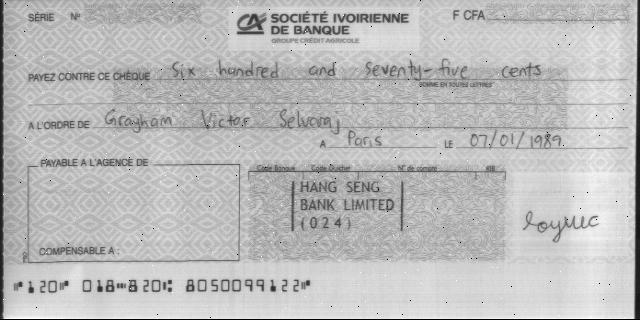 SÉRIE N°
CA SOCIÉTÉ IVOIRIENNE
DE BANQUE
GROUPE CRÉDIT AGRICOLE
F CFA
PAYEZ CONTRE CE CHÈQUE Six hundred and seventy-five cents
SOMME EN TOUTES LETTRES
A L'ORDRE DE Grayham Victor Selvaraj
A Paris LE 07/01/1989
PAYABLE A L'AGENCE DE
Code Banque Code Guichet N° de compte RIB
HANG SENG
BANK LIMITED
(024)
COMPENSABLE A :
⑈120⑈ 018⑉820⑆ 8050099122⑈